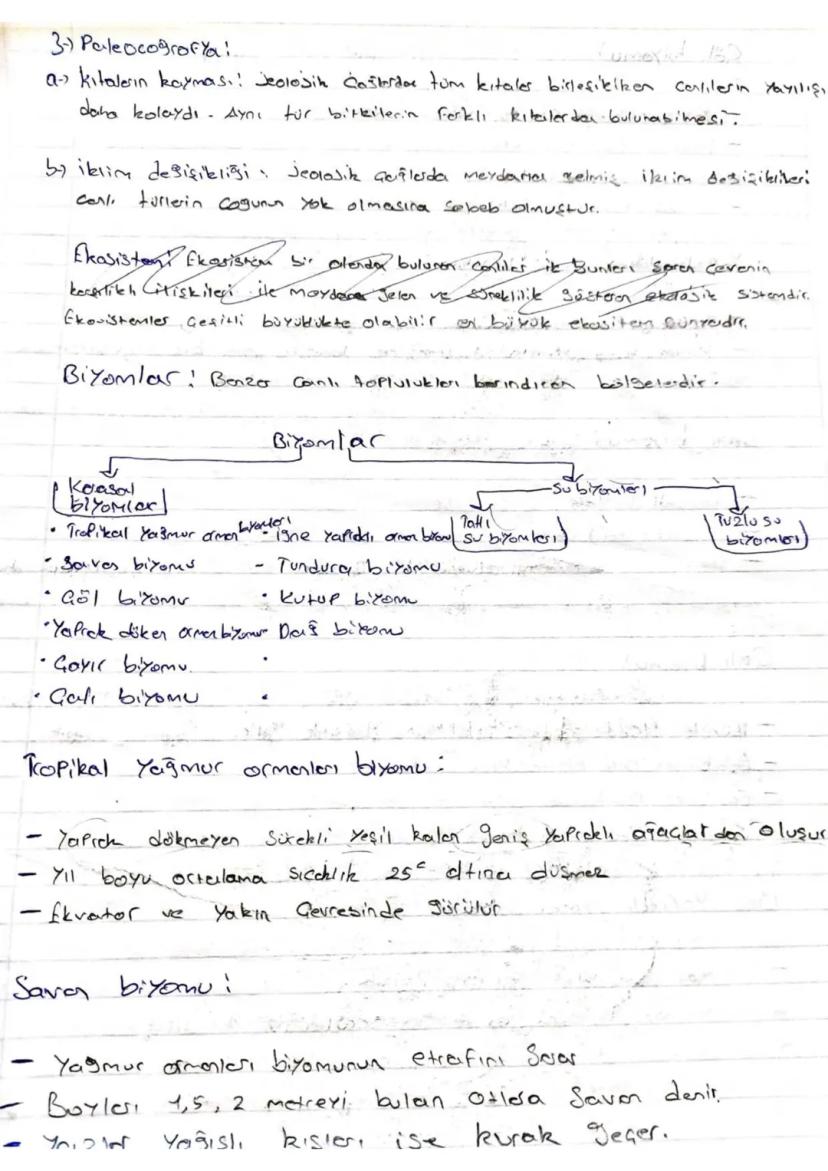 3-) Paleocoğrofya:
a-) kıtaların kayması: Jeolojik Çağlarda tüm kıtalar birleşikken canlıların yayılışı
daha kolaydı. Aynı tür bitkilerin farklı kıtalarda bulunabilmesi.
b-) iklim değişikliği: Jeolojik çağlarda meydana gelmiş iklim değişiklikleri
canlı türlerin çoğunun yok olmasına sebeb olmuştur.
Ekosistem: Ekosistem bir alanda bulunan canlılar ile Bunları saran çevrenin
karşılıklı ilişkileri ile meydana gelen ve süreklilik gösteren ekolojik sistemdir.
Ekosistemler çeşitli büyüklükte olabilir en büyük ekositem Dünyadır.
Biyomlar: Benzer canlı toplulukları barındıran bölgelerdir.
Biyomlar
Karasal biyomlar
Su biyomları
Tatlı su biyomları
Tuzlu su biyomları
• Tropikal Yağmur orman biyomları
• iğne yapraklı orman biyom
• Savan biyomu
- Tundura biyomu
• Çöl biyomu
• Kutup biyomu
• Yaprak döken orman biyomu
• Dağ biyomu
• Çayır biyomu
• Çalı biyomu
Tropikal Yağmur ormanları biyomu:
- Yaprak dökmeyen sürekli yeşil kalan geniş yapraklı ağaçlardan oluşur
- Yıl boyu ortalama sıcaklık 25° altına düşmez
- Ekvator ve yakın Çevresinde görülür
Savan biyomu:
- Yağmur ormanları biyomunun etrafını Sarar
- Boyları 1,5, 2 metreyi bulan otlara Savan denir.
- Yazlar Yağışlı kışları ise kurak geçer.